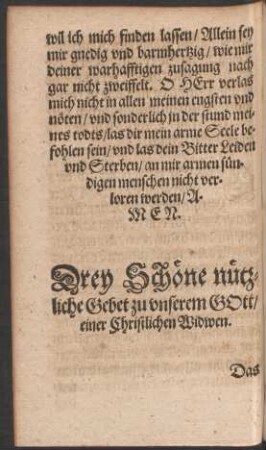 wil ich mich finden lassen / Allein sey
mir gnedig vnd barmhertzig / wie mir
deiner warhafftigen zusagung nach
gar nicht zweiffelt. O HErr verlas
mich nicht in allen meinen engsten vnd
nöten / vnd sonderlich in der stund mei-
nes todts / las dir mein arme Seele be-
fohlen sein / vnd las dein Bitter Leiden
vnd Sterben / an mir armen sün-
digen menschen nicht ver-
loren werden / A-
M E N.
Drey Schöne nütz-
liche Gebet zu vnserem GOtt /
einer Christlichen Widwen.
Das